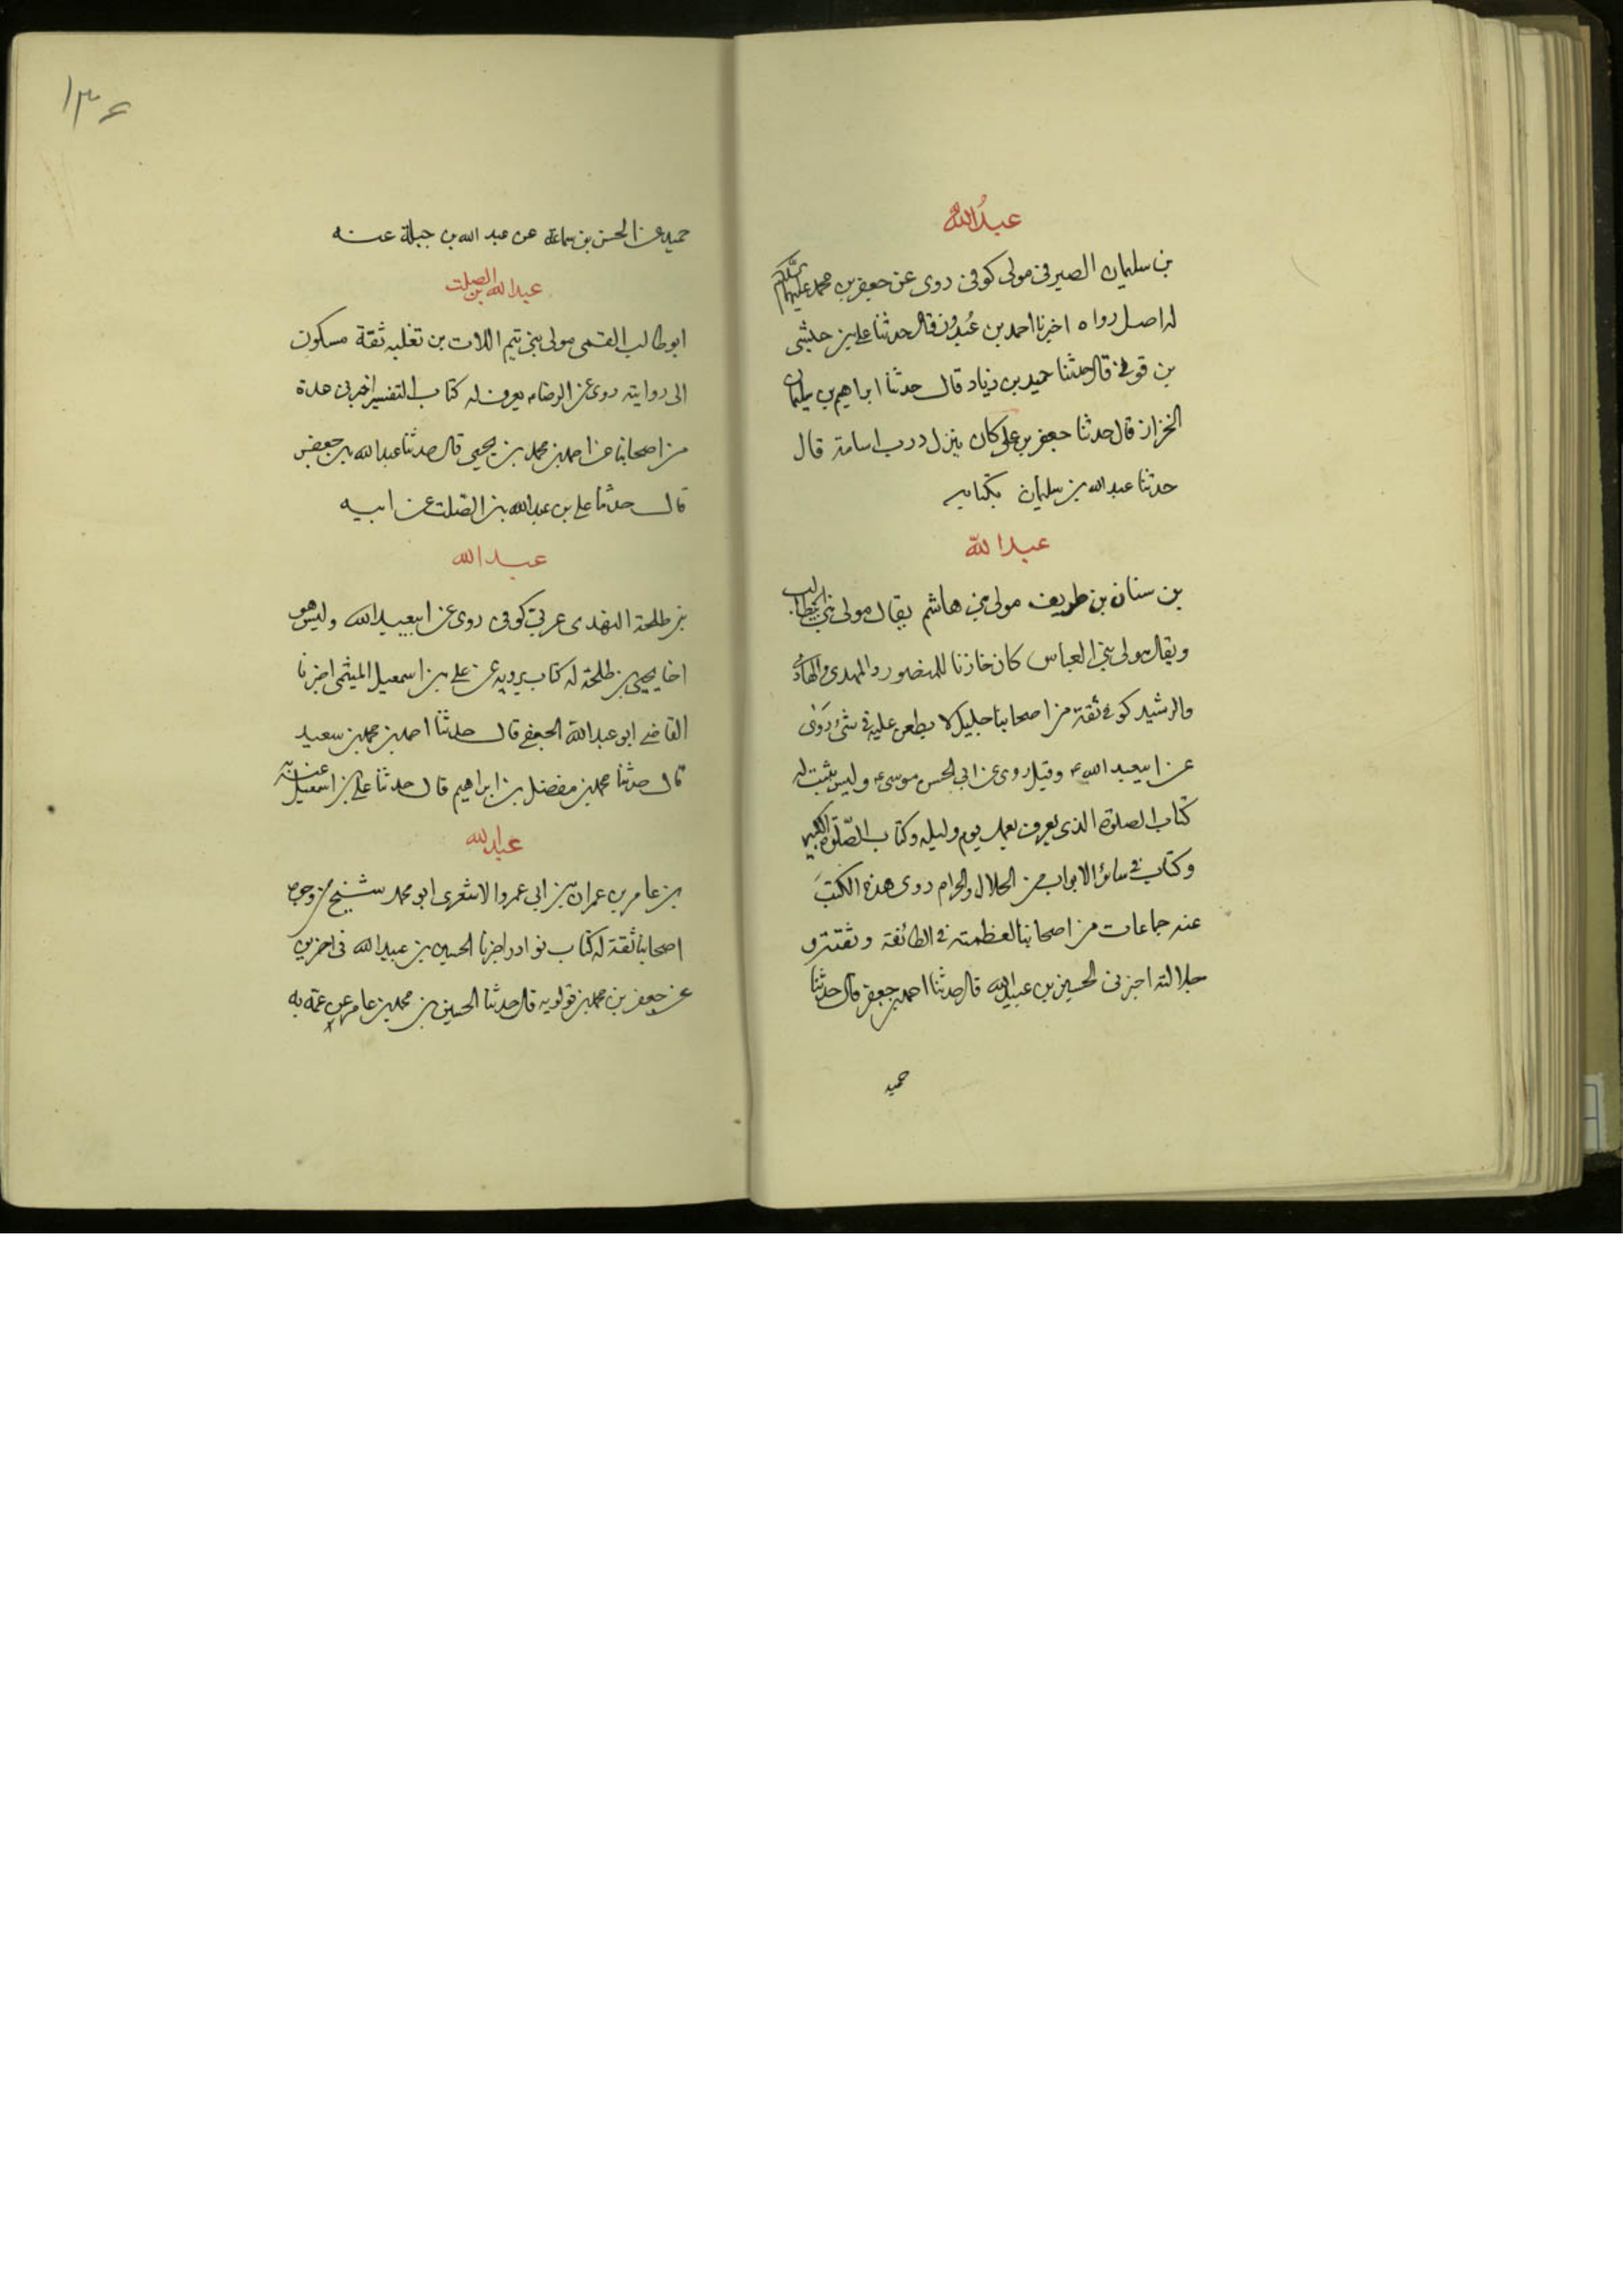 عبدالله
بن سليمان الصيرفى مولى كوفى روى عن جعفر بن محمد عليهما السلم
له اصل رواه اخبرنا احمد بن عبدون قال حدثنا على بن حبشى
بن قونى قال حدثنا حميد بن زياد قال حدثنا ابراهيم بن سليمان
الخزاز قال حدثنا جعفر بن على كان ينزل درب اسامة قال
حدثنا عبد الله بن سليمان بكتابه
عبد الله
بن سنان بن طريف مولى بنى هاشم يقال مولى بنى ابيطالب
ويقال مولى بنى العباس كان خازنا للمنصور والمهدى والهادى
والرشيد كوفى ثقة من اصحابنا جليل لا يطعن عليه فى شئ روى
عن ابيعبد الله ع وقيل روى عن ابى الحسن موسى ع وليس يثبت له
كتاب الصلوة الذى يعرف بعمل يوم وليله وكتاب الصلوة الكبير
وكتاب فى سائر الابواب من الحلال والحرام روى هذه الكتب
عنه جماعات من اصحابنا لعظمته فى الطائفة وثقته و
جلالته اخبرنى الحسين بن عبيد الله قال حدثنا احمد بن جعفر قال حدثنا
حميد
١٣۶
حميد عن الحسن بن سماعة عن عبد الله بن جبلة عنه
عبد الله بن الصلت
ابو طالب القمى مولى بنى تيم اللات بن ثعلبه ثقة مسكون
الى روايته روى عن الرضا ع يعرف له كتاب التفسير اخبرنى عدة
من اصحابنا عن احمد بن محمد بن يحيى قال حدثنا عبد الله بن جعفر
قال حدثنا على بن عبد الله بن الصلت عن ابيه
عبد الله
بن طلحة النهدى عربى كوفى روى عن ابيعبيد الله وليس هو
اخا يحيى بن طلحة له كتاب يرويه عن على بن اسمعيل الميثمى اخبرنا
القاضى ابو عبد الله الجعفى قال حدثنا احمد بن محمد بن سعيد
قال حدثنا محمد بن مفضل بن ابراهيم قال حدثنا على بن اسمعيل عنه به
عبد الله
بن عامر بن عمران بن ابى عمرو الاشعرى ابو محمد شيخ من وجوه
اصحابنا ثقة له كتاب نوادر اخبرنا الحسين بن عبيد الله فى اخرين
عن جعفر بن محمد بن قولويه قال حدثنا الحسين بن محمد بن عامر عن عمه به